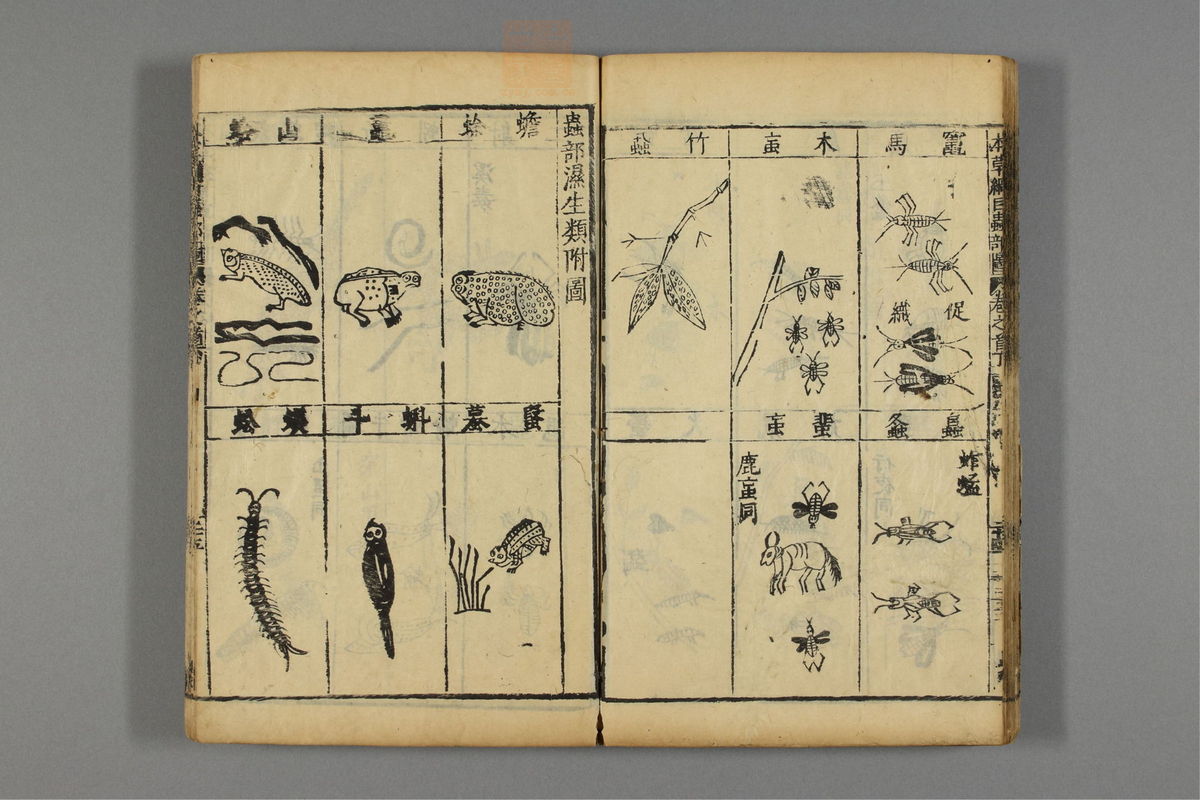 本草綱目蟲部圖卷之首下
竈馬
促織
木䖟
竹蝨
蟲螽
蚱蜢
蜚䖟
鹿䖟同
蟲部濕生類附圖
蟾蜍
山蛤
蝌斗
蜈蚣